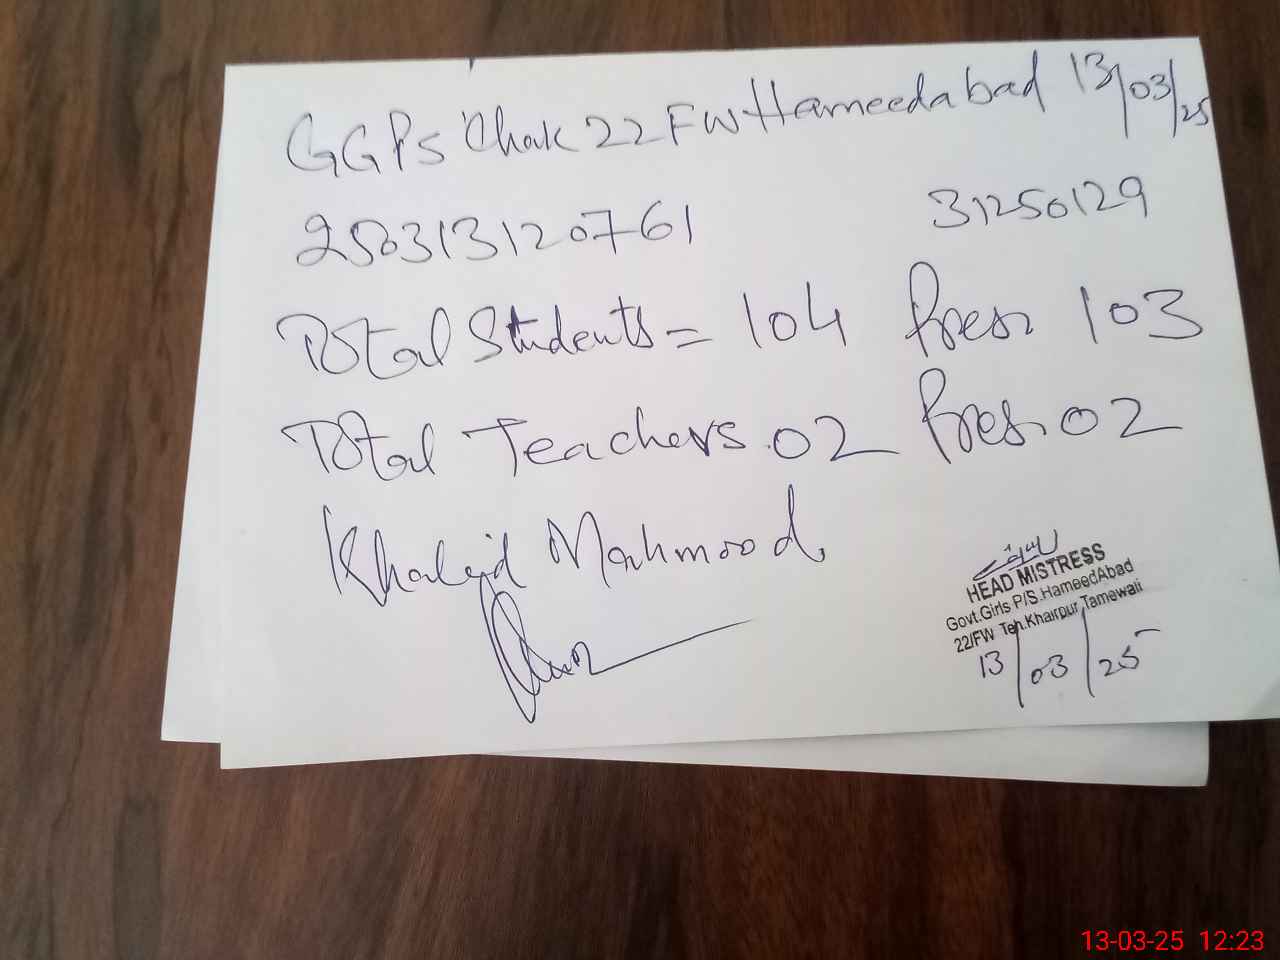 GGPS Chak 22FW Hameedabad 13/03/25
250313120761 31250129
Total Students = 104 Pres. 103
Total Teachers. 02 Pres. 02
Khalid Mahmood
HEAD MISTRESS
Govt.Girls P/S.HameedAbad
22/FW Teh.Khairpur Tamewali
13/03/25
13-03-25 12:23